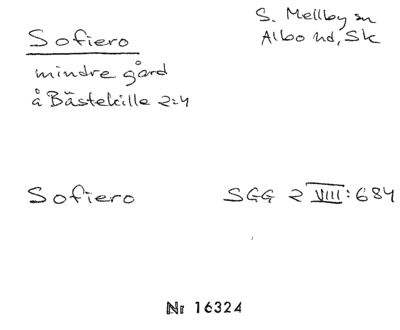 Sofiero
S. Mellby sn
Albo hd, Sk
mindre gård
å Bästekille 2:4
Sofiero
SGG 2 VIII: 684
Nr 16324